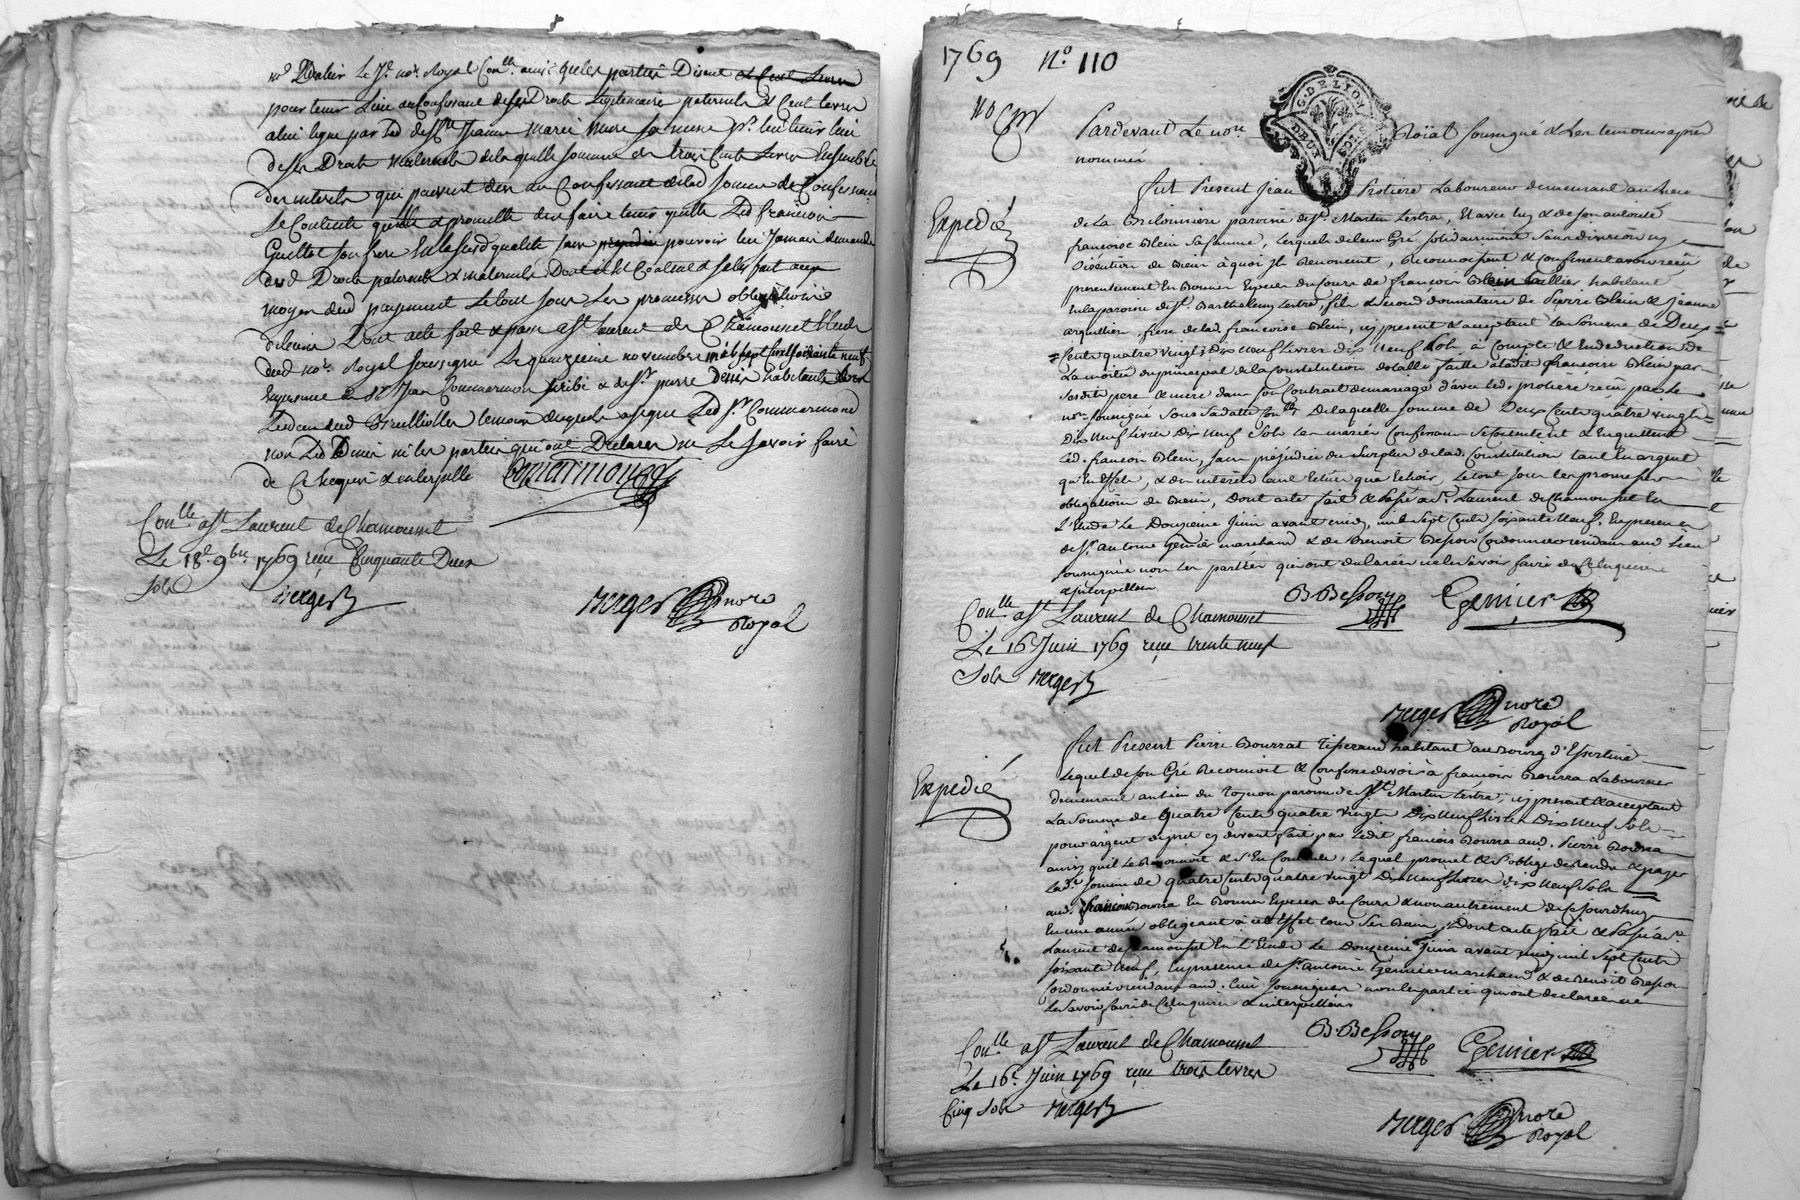 pour tenir lieu au Confessant de ses Droits Legitimaires paternels & Cent livres
a lui legué par Jeanne Marie sa mere pr. lui tenir lieu
de ses Droits maternels de laquelle somme de trois Cents livres Ensemble
des interets qui peuvent etre du au Confessant de lad somme le Confessant
se Contente quitte & promette den faire tenir quitte Led francois
Guillot son frere sans pouvoir lui Jamais demander
desd Droits paternels & maternels Dont il fait
moyen dud payement Le tout sous les promesses obligations
de biens Dont acte fait & passé a St Laurent de Chamousset Etude
dud nore. Royal soussigné Le quinzieme novembre mil sept cent soixante neuf
En presence de Sr Jean Commarmond & de Sr. pierre Denis habitants
temoins Led Sr Commarmond
non Led Denis ni les parties qui ont Declaré ne Le Savoir faire
de Ce Requis & interpellé Commarmond
Conlle a St Laurent de Chamousset
Le 18e 9bre 1769 reçu Cinquante Deux
Sols Berger
Berger nore
Royal
1769 No. 110
G. DE LYON
DEUX SOLS
Pardevant Le nore. Roïal soussigné & Les temoins après
nommés
Expedié
fut Present Jean Protiere Laboureur demeurant au lieu
de La Brilonniere paroisse de St. Martin Lestra, Et avec luy & de son autorité
francoise Blein sa femme, Lesquels de leur Gré solidairement sans division ny
Discution de biens à quoi Ils Renoncent, Reconnoissent & confessent avoir reçu
presentement En Bonnes Especes du Cours de francois Blein tallier habitant
En la paroisse de St. Barthelemy Lestra, fils & donnataire de Pierre Blein & Jeanne
arquillier, frere de lad. francoise Blein, icy present & acceptant La Somme de Deux
Cents quatre vingts Dix neuf Livres Dix neuf Sols, à Compte & En deduction de
La moitié du principal de la Constitution dotalle faitte à lad. francoise Blein par
sesdits pere & mere dans son Contrat de mariage d'avec led. protiere reçu par Le
nore. soussigné sous sa datte De laquelle somme de Deux Cents quatre vingts
Dix Neuf Livres Dix Neuf Sols les mariés Confessans se Contentent & En quittent
Led. francois Blein, sans préjudice du Surplus de lad. Constitution tant En argent
qu'En Effets, & des interets tant Echus que à Echoir, Le tout sous les promesses
obligations de Biens, Dont acte fait & Passé à St. Laurent de Chamousset En
L'Etude Le Douzieme Juin avant midy, mil Sept Cents soixante Neuf, En presence
de Sr. Antoine Genier marchand & de Benoit Besson Cordonnier residans aud Lieu
soussignés non les parties qui ont declaré ne le Savoir faire de ce Enquises
& interpellées
B Besson Genier
Conlle a St Laurent de Chamousset
Le 16 Juin 1769 reçu trente neuf
Sols Berger
Berger nore
Royal
Expedié
fut Present Pierre Bourrat Tisserand habitant au Bourg d'Essertine
Lequel de son Gré Reconnoit & Confesse devoir à francois Bourra Laboureur
demeurant au lieu du Tognon paroisse de St. Martin Lestra, icy present & acceptant
La Somme de Quatre Cents quatre vingts Dix Neuf Livres Dix Neuf Sols
pour argent de pret cy devant fait par Ledit francois Bourra aud. Pierre Bourra
ainsy qu'il Le Reconnoit & S'En Contente, Lequel promet & S'oblige de Rendre & payer
Lade. somme de quatre Cents quatre vingt Dix Neuf Livres dix Neuf Sols
aud. francois Bourra En Bonnes Especes du Cours & non autrement de Ce Jourdhuy
En une année obligeant à cet Effet tous Ses Biens, Dont acte fait & Passé à St.
Laurent de Chamousset En L'Etude Le Douzieme Juin avant midy mil Sept Cents
soixante Neuf, En presence de Sr. Antoine Genier marchand & de Benoit Besson
Cordonnier residans aud. Lieu soussignés non les parties qui ont declaré ne
Le Savoir faire de Ce Enquises & interpellées
B. Besson Genier
Conlle a St Laurent de Chamousset
Le 16e Juin 1769 reçu trois Livres
Cinq Sols Berger
Berger nore
Royal